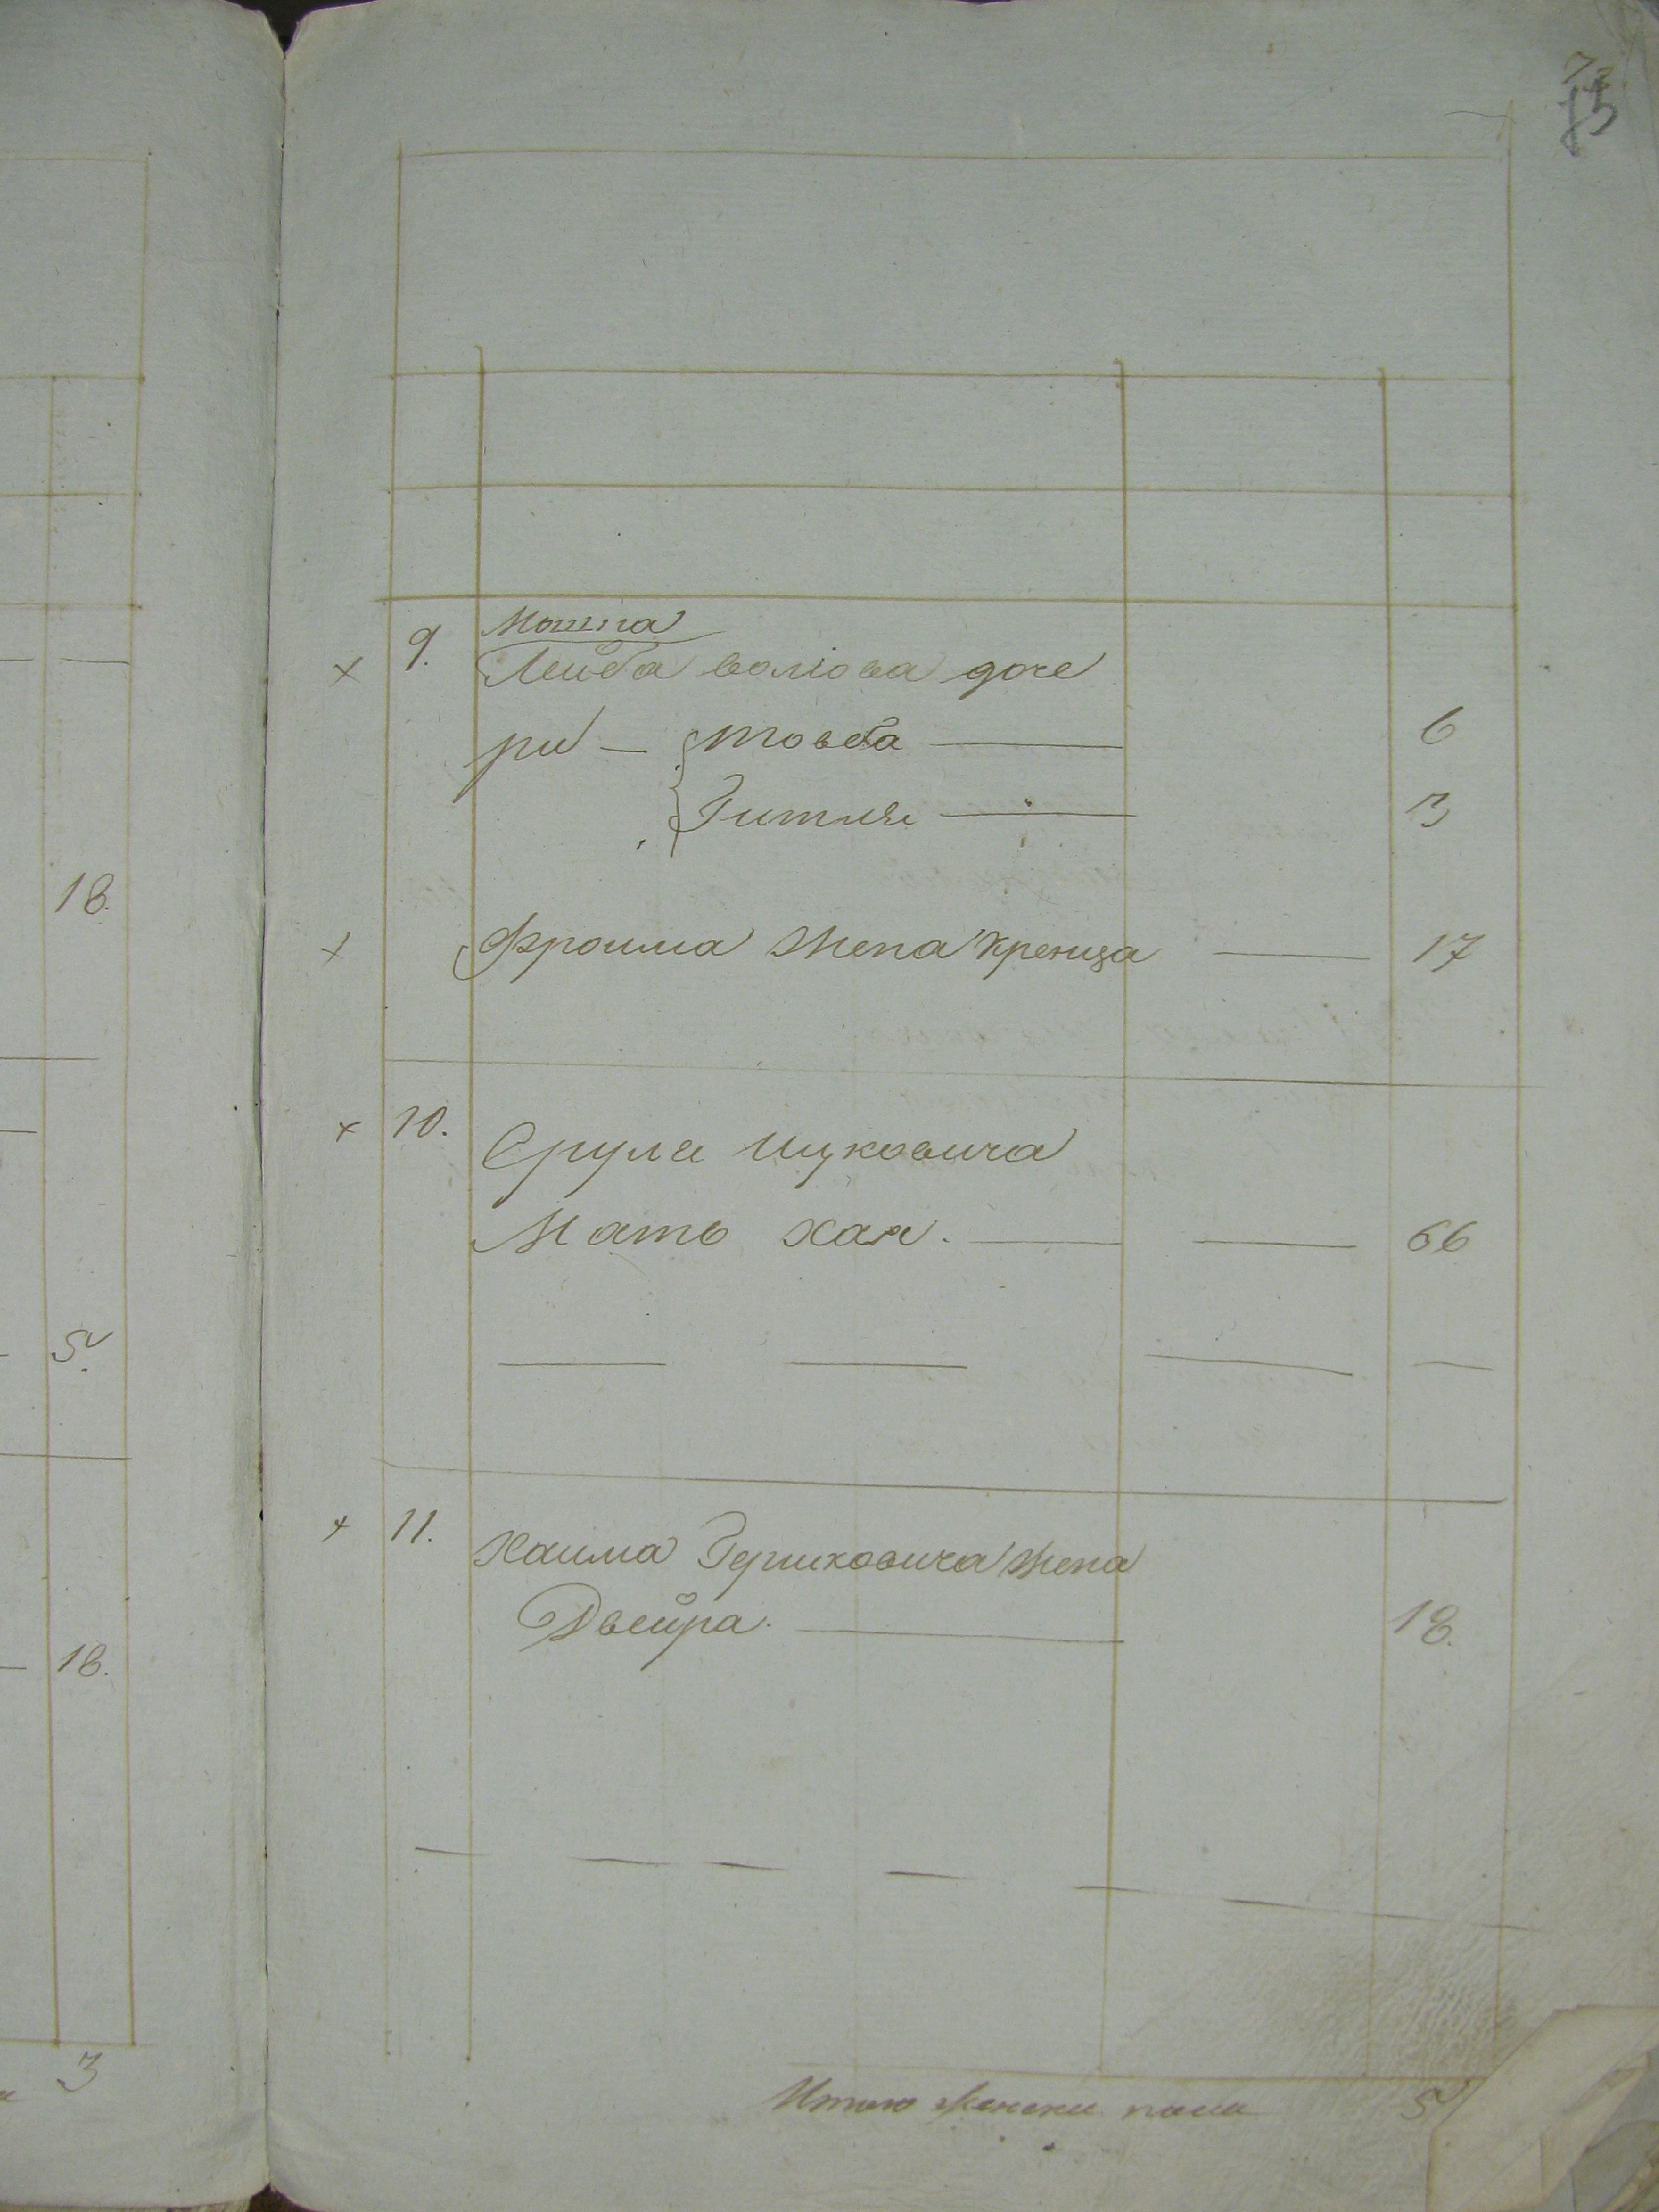 75
9. Мошпа
Лейба волiова доче
ри — Товба — 6
Гитля — 3
Фроима жена Кренца — 17
10. Сруля Ицковича
Мать Хая. — — 66
11. Хаима Гершковича жена
Двейра. — 18.
Итого женска пола 5
18.
5.
18.
3